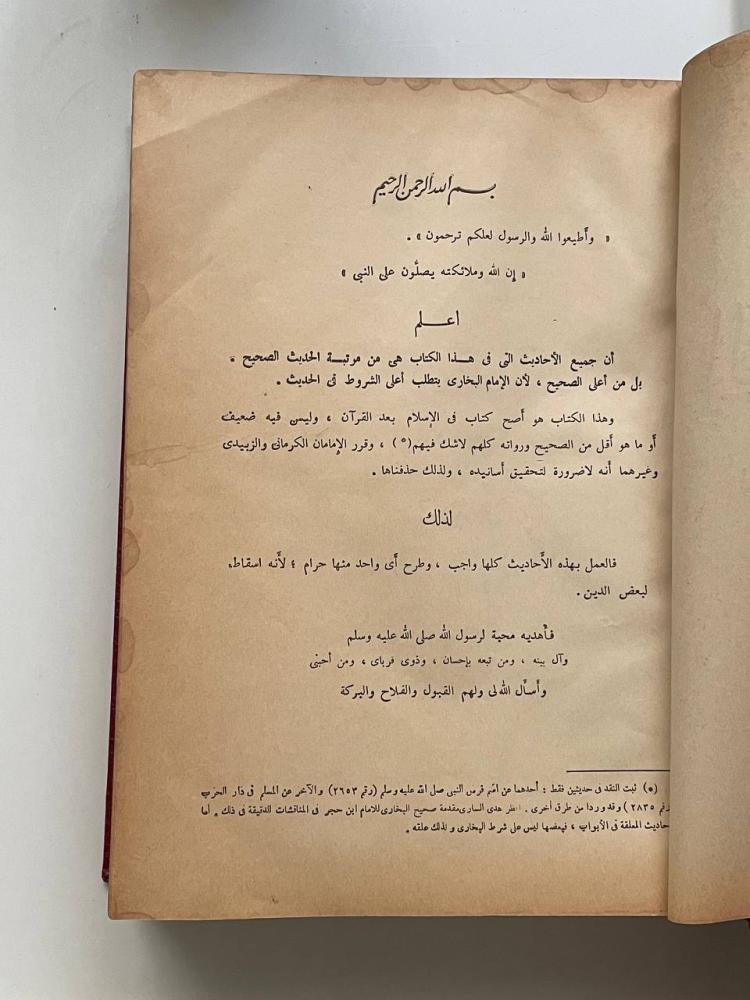 بسم الله الرحمن الرحيم
« وأطيعوا الله والرسول لعلكم ترحمون » .
« إن الله وملائكته يصلُّون على النبى »
اعـلـم
أن جميع الأحاديث التى فى هـذا الكتاب هى من مرتبـة الحديث الصحيح .
بل من أعلى الصحيح ، لأن الإمام البخارى يتطلب أعلى الشروط فى الحديث .
وهذا الكتاب هو أصح كتاب فى الإسلام بعد القرآن ، وليس فيه ضعيف
أو ما هو أقل من الصحيح ورواته كلهم لاشك فيهم(*) ، وقرر الإمامان الكرمانى والزبيدى
وغيرهما أنه لاضرورة لتحقيق أسانيده ، ولذلك حذفناها .
لذلك
فالعمل بهذه الأحاديث كلها واجب ، وطرح أى واحد منها حرام ؛ لأنه اسقاط
لبعض الدين .
فأهديه محبة لرسول الله صلى الله عليه وسلم
وآل بيته ، ومن تبعه بإحسان ، وذوى قرباى ، ومن أحبنى
وأسأل الله لى ولهم القبول والفلاح والبركة
(*) ثبت النقد فى حديثين فقط : أحدهما عن اسم فرس النبى صلى الله عليه وسلم (رقم ٢٦٥٣) والآخر عن المسلم فى دار الحرب
رقم ٢٨٣٥ ) وقد وردا من طرق أخرى . انظر هدى السارى مقدمة صحيح البخارى للامام ابن حجر فى المناقشات الدقيقة فى ذلك . أما
حاديث المعلقة فى الأبواب ، فبعضها ليس على شرط البخارى ولذلك علقه .